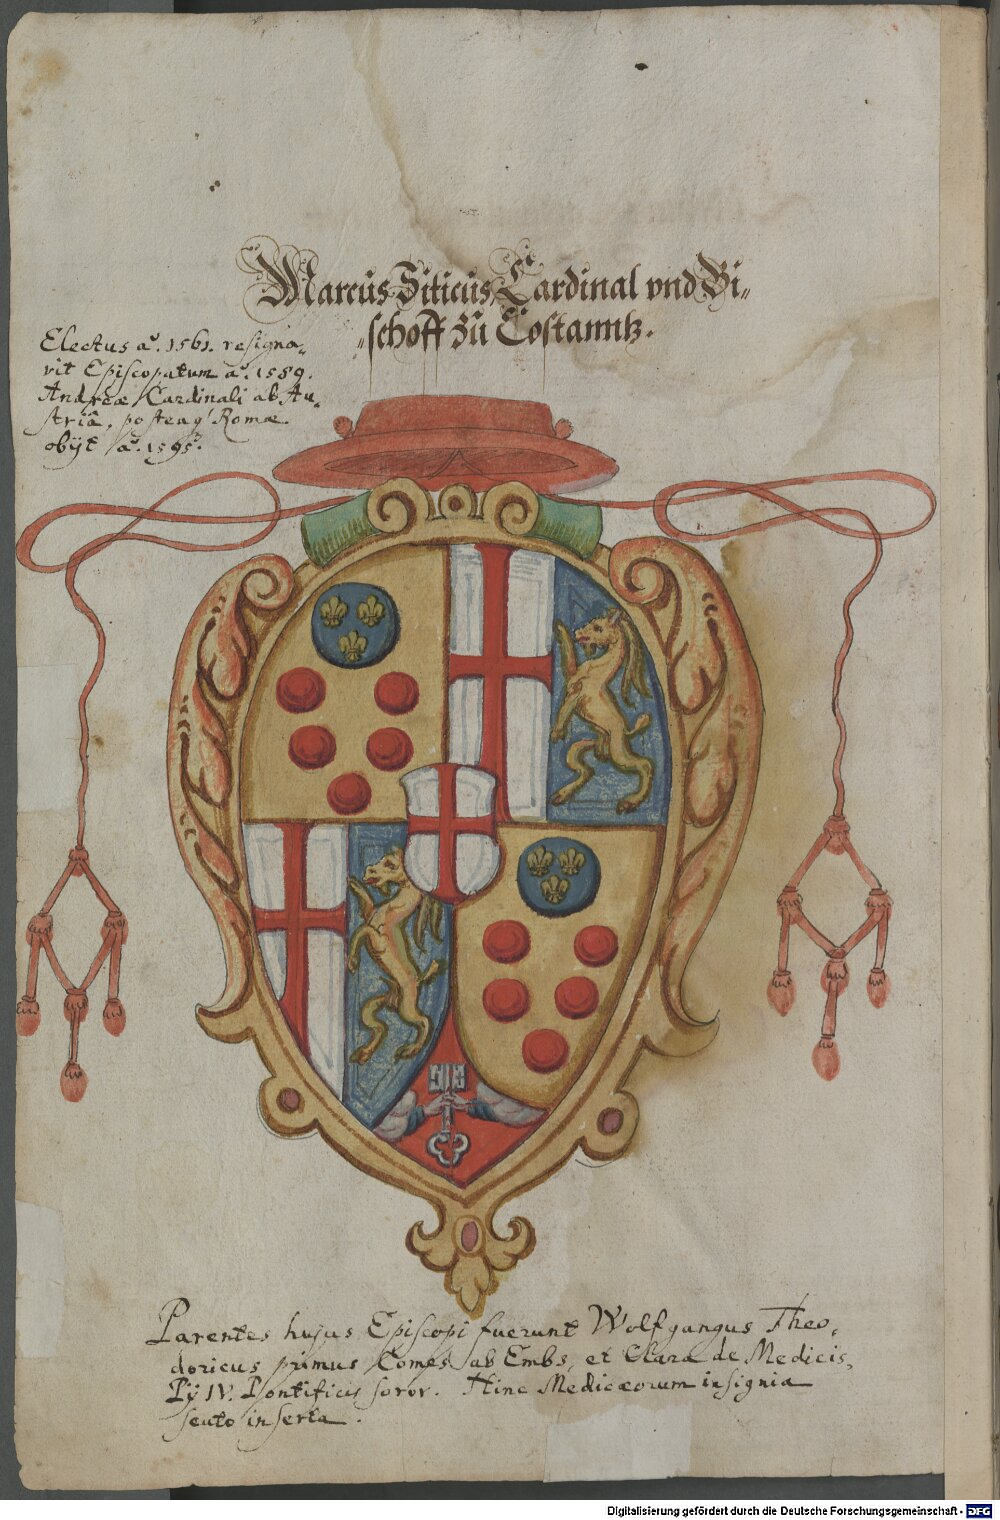 Marcus Siticus, Cardinal vnd Bi„
„schoff zů Costanntz.
Electus aº. 1561. resigna„
vit Episcopatum aº. 1589.
Andreæ Cardinali ab Au„
striâ, posteaq' Romæ
obijt aº. 1595.
Parentes hujus Episcopi fuerunt Wolfgangus Theo„
doricus primus Comes ab Embs, et Clara de Medicis,
Pij IV. Pontificis soror. Hinc Mediceorum insignia
scuto inserta.
Digitalisierung gefördert durch die Deutsche Forschungsgemeinschaft - DFG